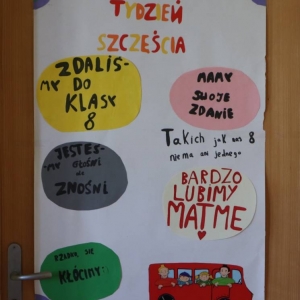 TYDZIEŃ
SZCZĘŚCIA
ZDALIŚ-
MY DO
KLASY
8
MAMY
SWOJE
ZDANIE
Takich jak nas 8
nie ma ani jednego
JESTEŚ-
MY GŁOŚNI
do
ZNOŚNI
BARDZO
LUBIMY
MATMĘ
RZADKO SIĘ
KŁÓCIMY